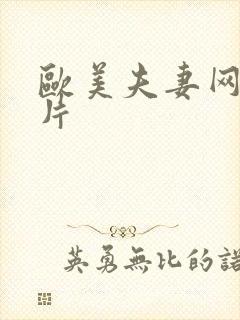 歐美夫妻网
片
英勇無比的諾